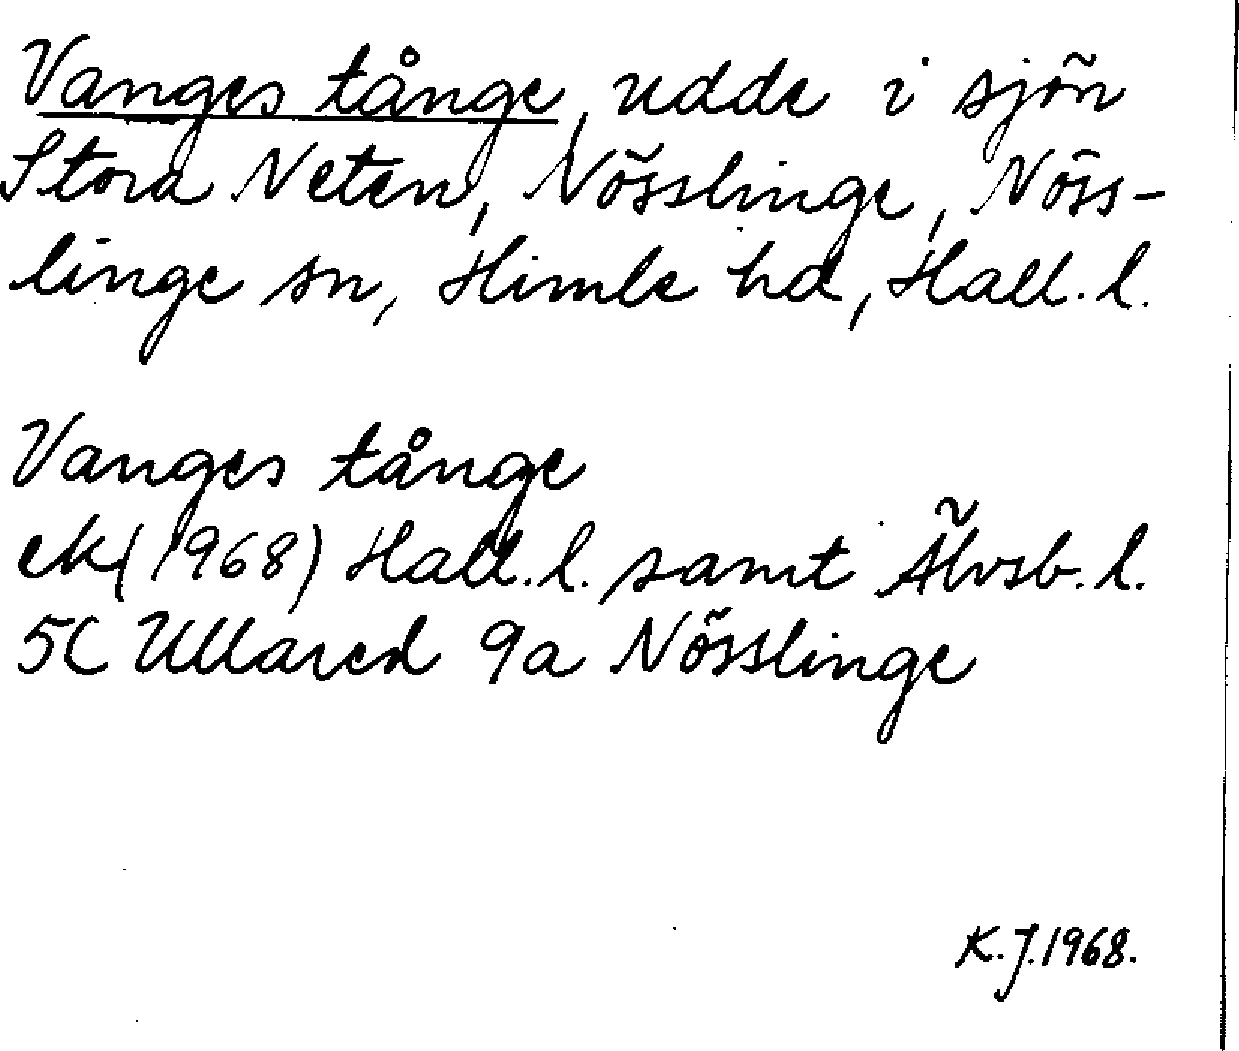 Vanges tånge, udde i sjön
Stora Neten, Nösslinge, Nöss-
linge sn, Himle hd, Hall. l.
Vanges tånge
ek (1968) Hall. l. samt Älvsb. l.
5C Ullared 9a Nösslinge
K. J. 1968.